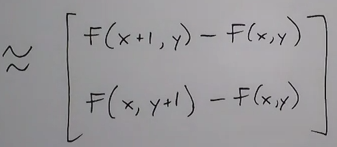 ≈ [ F(x+1, y) - F(x,y)
F(x, y+1) - F(x,y) ]